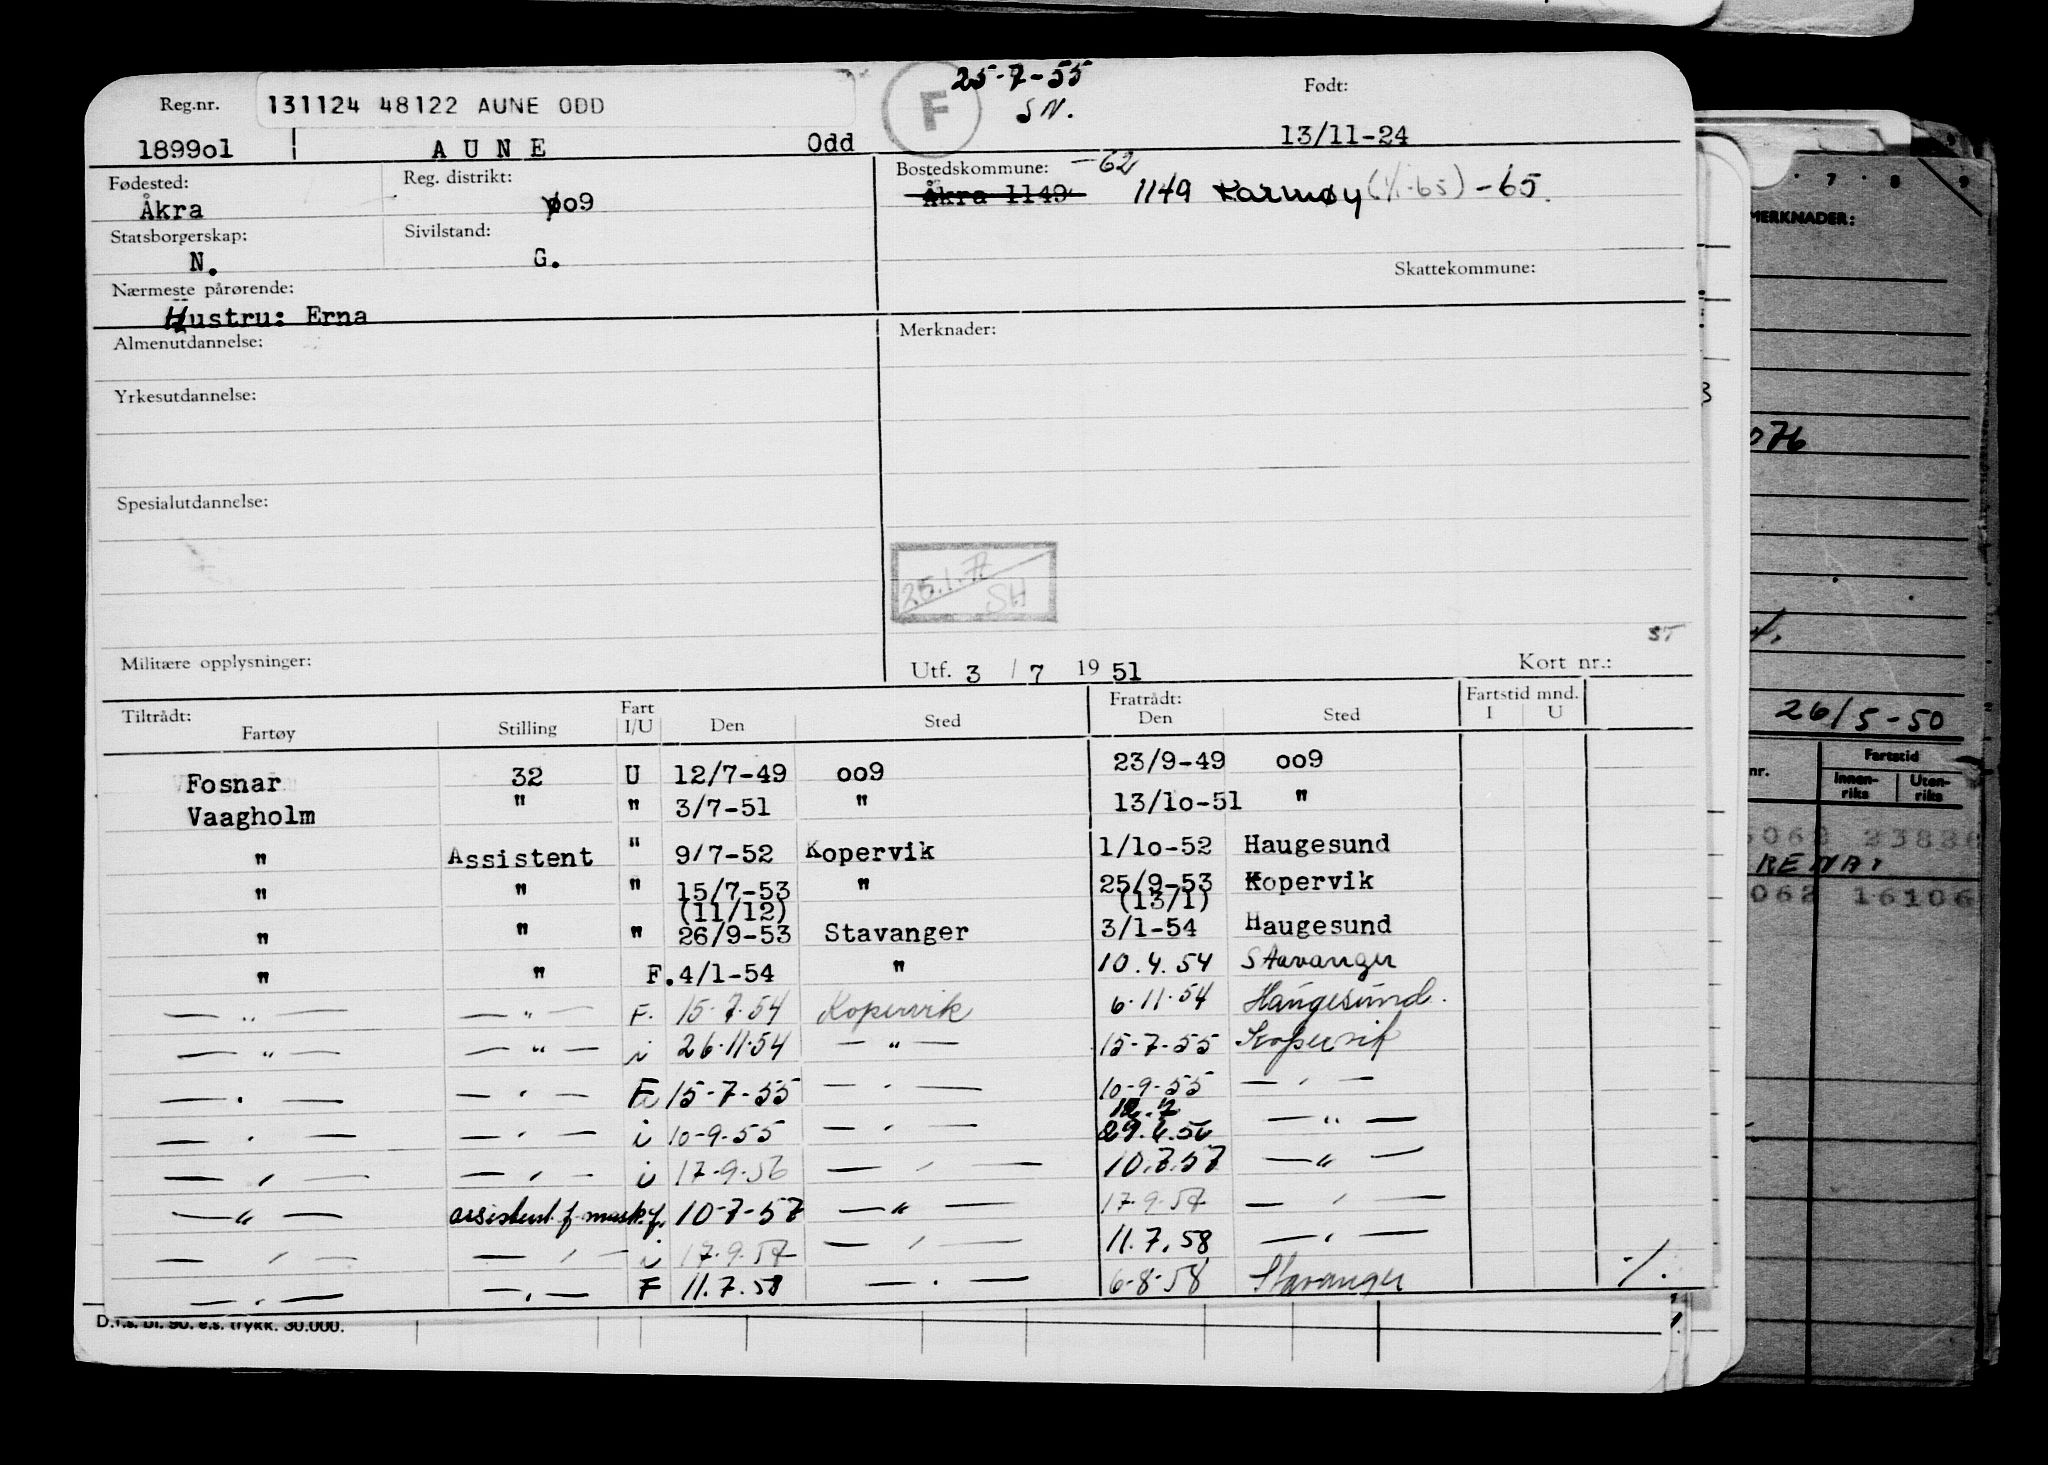 25-7-55
F
SN.
Født:
Reg.nr. 131124 48122 AUNE ODD
1899o1 AUNE Odd 13/11-24
Fødested: Reg. distrikt: Bostedskommune: -62
Åkra øo9 Åkra 1149 1149 Karmøy (1/1-65) -65.
Statsborgerskap: Sivilstand:
N. G.
Skattekommune:
Nærmeste pårørende:
Hustru: Erna
Almenutdannelse: Merknader:
Yrkesutdannelse:
Spesialutdannelse:
25.1.77
SH
ST
Militære opplysninger: Utf. 3 / 7 1951 Kort nr.:
Tiltrådt: Fart Fratrådt: Fartstid mnd.
Fartøy Stilling I/U Den Sted Den Sted I U
Fosnar 32 U 12/7-49 oo9 23/9-49 oo9
Vaagholm " " 3/7-51 " 13/1o-51 "
" Assistent " 9/7-52 Kopervik 1/1o-52 Haugesund
" " " 15/7-53 " 25/9-53 Kopervik
(11/12) (13/1)
" " " 26/9-53 Stavanger 3/1-54 Haugesund
" " F. 4/1-54 " 10.4.54 Stavanger
— " — — " — F. 15-7.54 Kopervik 6.11.54 Haugesund.
— " — — " — i 26.11.54 — " — 15-7-55 Kopervik
— " — — " — F 15-7-55 — " — 10-9-55 — " —
12.7
— " — — " — i 10-9-55 — " — 29.6.56 — " —
— " — — " — i 17-9-56 — " — 10.7.57 — " —
— " — assistent f. mask.f. 10-7-57 — " — 17-9-57 — " —
— " — — " — i 17.9.57 — " — 11.7.58 — " —
— " — — " — F 11.7.58 — " — 6-8-58 Stavanger -/.
D.f.s. bl. 90. e.s. trykk. 30.000.
7 8 9
MERKNADER:
076
26/5-50
nr. Fartstid
Innen-riks Uten-riks
062 16106